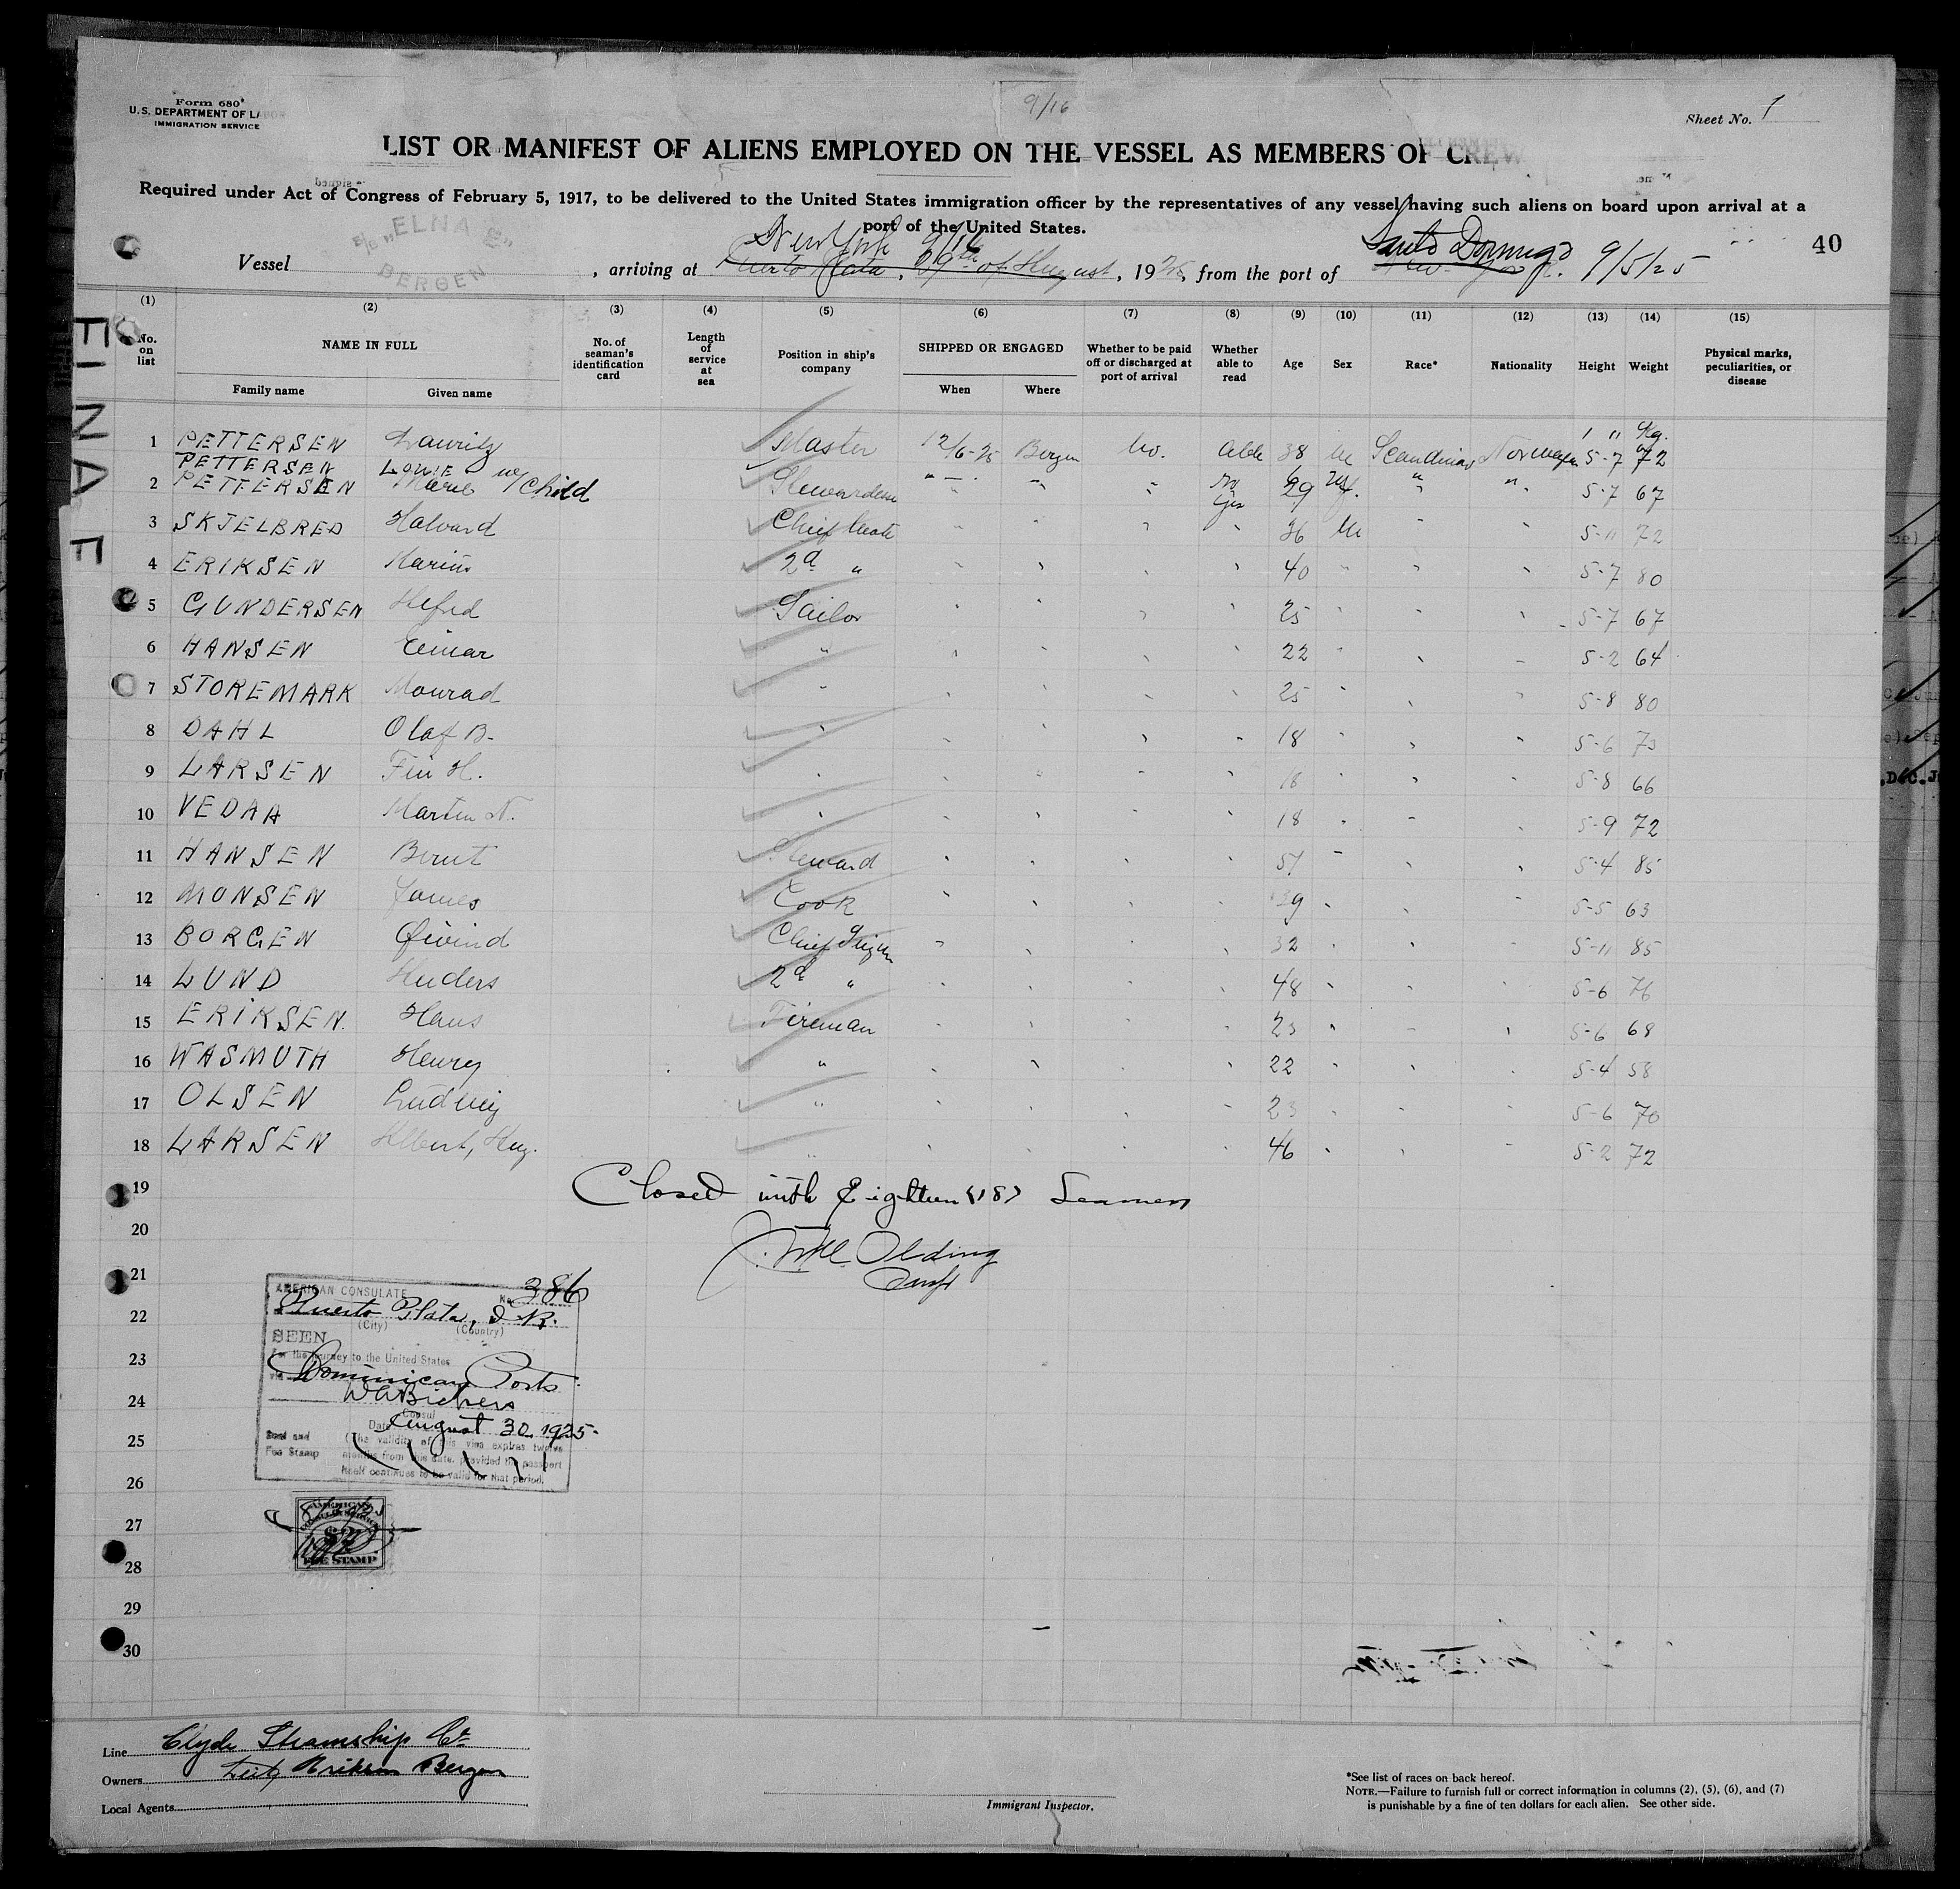 Form 680
U.S. DEPARTMENT OF LABOR
IMMIGRATION SERVICE
9/16
Sheet No. 1
LIST OR MANIFEST OF ALIENS EMPLOYED ON THE VESSEL AS MEMBERS OF CREW
Required under Act of Congress of February 5, 1917, to be delivered to the United States immigration officer by the representatives of any vessel having such aliens on board upon arrival at a
port of the United States.
40
S/S "ELNA E"
BERGEN
New York 9/16 Santo Domingo
Vessel , arriving at Puerto Plata, 29th of August, 1925, from the port of 9/5/25
ELNA E
(1) (2) (3) (4) (5) (6) (7) (8) (9) (10) (11) (12) (13) (14) (15)
No. on list NAME IN FULL Family name Given name No. of seaman's identification card Length of service at sea Position in ship's company SHIPPED OR ENGAGED When Where Whether to be paid off or discharged at port of arrival Whether able to read Age Sex Race* Nationality Height Weight Physical marks, peculiarities, or disease
1 PETTERSEN Lauritz Master 12/6-25 Bergen No. Able 38 M Scandinav Norwegn 5-7 72 Kg.
PETTERSEN Louie w/ Child No
2 PETTERSEN Marie Stewardess " " " yes 29 f. " " 5-7 67
3 SKJELBRED Halvard Chief Mate " " " " 36 M " " 5-11 72
4 ERIKSEN Marius 2d " 40 5-7 80
5 GUNDERSEN Alfred Sailor 25 5-7 67
6 HANSEN Einar " 22 5-2 64
7 STOREMARK Monrad " 25 5-8 80
8 DAHL Olaf B. " 18 5-6 73
9 LARSEN Fin H. " 18 5-8 66
10 VEDAA Martin N. " 18 5-9 72
11 HANSEN Bernt Steward 51 5-4 85
12 MONSEN James Cook 39 5-5 63
13 BORGEN Øivind Chief Engin 32 5-11 85
14 LUND Anders 2d " 48 5-6 76
15 ERIKSEN. Hans Fireman 23 5-6 68
16 WASMUTH Henry " 22 5-4 58
17 OLSEN Ludvig " 23 5-6 70
18 LARSEN Albert, Aug. " 46 5-2 72
19 Closed with Eighteen (18) Seamen
20 Olding
21
22
23
24
25
26
27
28
29
30
AMERICAN CONSULATE No. 386
Puerto Plata, D.R.
(City) (Country)
SEEN
For the journey to the United States
via Dominican Ports
W A Bickers
Consul
Date August 30, 1925.
Seal and Fee Stamp
(The validity of this visa expires twelve
months from this date, provided the passport
itself continues to be valid for that period.
AMERICAN
CONSULAR SERVICE
$2
FEE STAMP
Line Clyde Steamship Co
Owners Eriksen Bergen
Local Agents
Immigrant Inspector.
*See list of races on back hereof.
NOTE.—Failure to furnish full or correct information in columns (2), (5), (6), and (7)
is punishable by a fine of ten dollars for each alien. See other side.